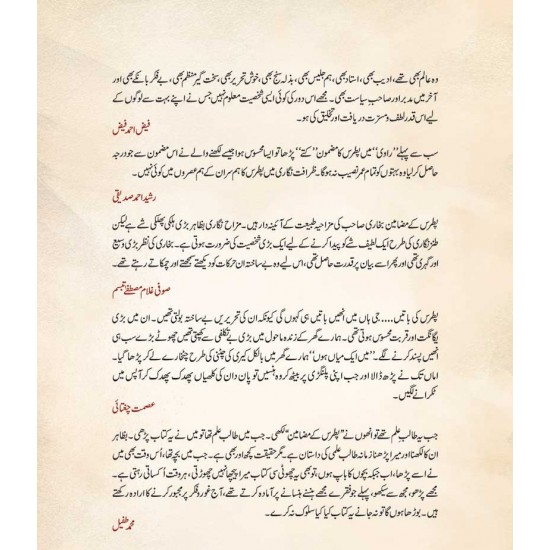 وہ عالم بھی تھے، ادیب بھی، استاد بھی، ہم جلیس بھی، بذلہ سنج بھی، خوش تحریر بھی، سخت گیر منتظم بھی، بے فکر بانکے بھی اور
آخر میں مدبر اور صاحب سیاست بھی۔ مجھے اس دور کی کوئی ایسی شخصیت معلوم نہیں جس نے اپنے بہت سے لوگوں کے
لیے اس قدر لطف و مسرت دریافت اور تخلیق کی ہو۔
فیض احمد فیض
سب سے پہلے ”راوی“ میں پطرس کا مضمون ”کتے“ پڑھا تو ایسا محسوس ہوا جیسے لکھنے والے نے اس مضمون سے جو درجہ
حاصل کر لیا وہ بہتوں کو تمام عمر نصیب نہ ہوگا۔ ظرافت نگاری میں پطرس کا ہم سر ان کے ہم عصروں میں کوئی نہیں۔
رشید احمد صدیقی
پطرس کے مضامین بخاری صاحب کی مزاحیہ طبیعت کے آئینہ دار ہیں۔ مزاح نگاری بظاہر بڑی ہلکی پھلکی شے ہے لیکن
طنز نگاری کی طرح ایک لطیف شے کو پیدا کرنے کے لیے ایک بڑی شخصیت کی ضرورت ہوتی ہے۔ بخاری کی نظر بڑی وسیع
اور گہری تھی اور پھر اسے بیان پر قدرت حاصل تھی، اس لیے وہ بے ساختہ ان حرکات کو دیکھتے سمجھتے اور چمکاتے رہتے تھے۔
صوفی غلام مصطفےٰ تبسم
پطرس کی باتیں.... جی ہاں میں انھیں باتیں ہی کہوں گی کیونکہ ان کی تحریریں بے ساختہ بولتی تھیں۔ ان میں بڑی
یگانگت اور قربت محسوس ہوتی تھی۔ ہمارے گھر کے زندہ ماحول میں بڑی بے تکلفی سے کھپتی تھیں چھوٹے بڑے سب ہی
انھیں پسند کرنے لگے۔ ”میں ایک میاں ہوں“ ہمارے گھر میں بالکل کیری کی چٹنی کی طرح چٹخارے لے کر پڑھا گیا۔
اماں تک نے پڑھ ڈالا اور جب اپنی پلنگڑی پر بیٹھ کر وہ ہنسیں تو پان دان کی کلھیاں پھدک پھدک کر آپس میں
ٹکرانے لگیں۔
عصمت چغتائی
جب یہ طالب علم تھے تو انھوں نے ”پطرس کے مضامین“ لکھی۔ جب میں طالب علم تھا تو میں نے یہ کتاب پڑھی۔ بظاہر
ان کا لکھنا اور میرا پڑھنا زمانہ طالب علمی کی داستان ہے۔ مگر حقیقت کچھ اور بھی ہے۔ جب میں بچہ تھا، اُس وقت بھی میں
نے اسے پڑھا، اب جبکہ بچوں کا باپ ہوں، تو بھی یہ چھوٹی سی کتاب میرا پیچھا نہیں چھوڑتی، ہر وقت اُکساتی رہتی ہے۔
مجھے پڑھو، مجھ سے سیکھو، پہلے جو فقرے مجھے ہنسنے ہنسانے پر آمادہ کرتے تھے، آج غور و فکر پر مجبور کرنے کا ارادہ رکھتے
ہیں۔ بوڑھا ہوں گا تو نہ جانے یہ کتاب کیا کیا سلوک نہ کرے۔
محمد طفیل